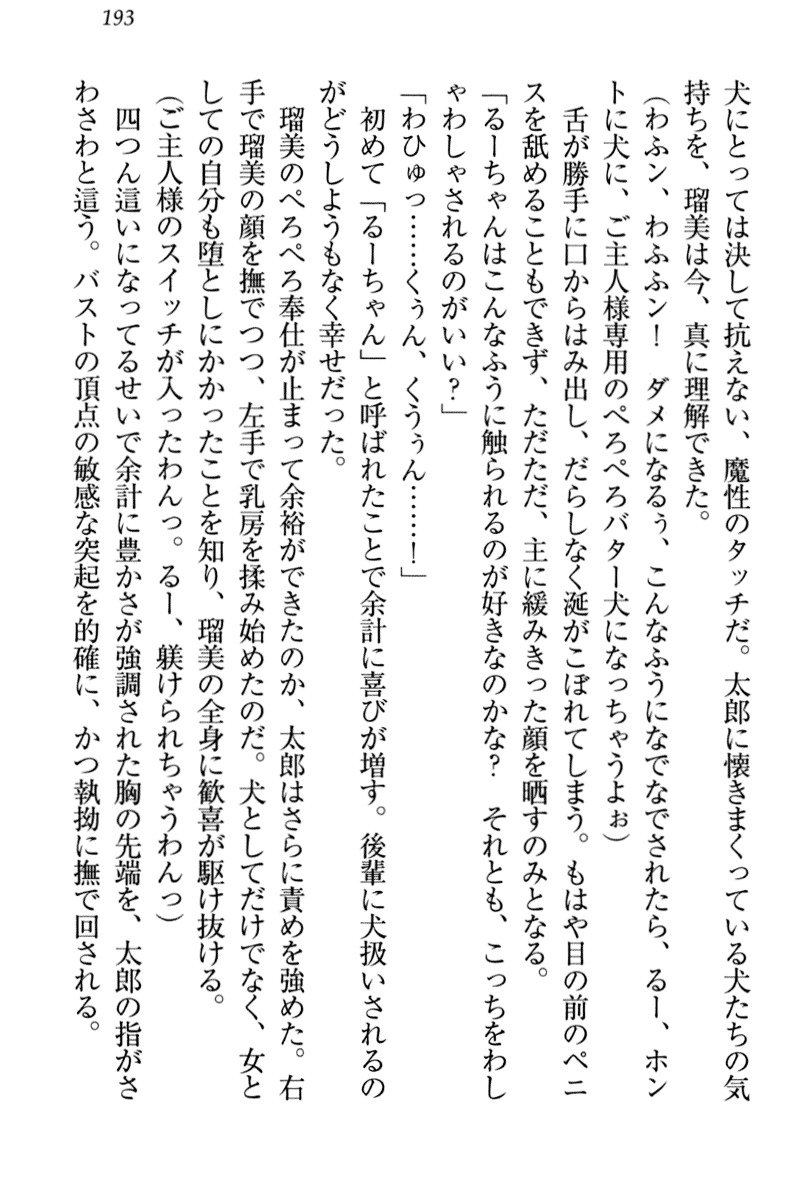 193
犬にとっては決して抗えない、魔性のタッチだ。太郎に懐きまくっている犬たちの気
持ちを、瑠美は今、真に理解できた。
(わふン、わふふン！　ダメになるぅ、こんなふうになでなでされたら、るー、ホン
トに犬に、ご主人様専用のぺろぺろバター犬になっちゃうよぉ)
　舌が勝手に口からはみ出し、だらしなく涎がこぼれてしまう。もはや目の前のペニ
スを舐めることもできず、ただただ、主に緩みきった顔を晒すのみとなる。
「るーちゃんはこんなふうに触られるのが好きなのかな？　それとも、こっちをわし
ゃわしゃされるのがいい？」
「わひゅっ……くぅん、くうぅん……！」
　初めて「るーちゃん」と呼ばれたことで余計に喜びが増す。後輩に犬扱いされるの
がどうしようもなく幸せだった。
　瑠美のぺろぺろ奉仕が止まって余裕ができたのか、太郎はさらに責めを強めた。右
手で瑠美の顔を撫でつつ、左手で乳房を揉み始めたのだ。犬としてだけでなく、女と
しての自分も堕としにかかったことを知り、瑠美の全身に歓喜が駆け抜ける。
(ご主人様のスイッチが入ったわんっ。るー、躾けられちゃうわんっ)
　四つん這いになってるせいで余計に豊かさが強調された胸の先端を、太郎の指がさ
わさわと這う。バストの頂点の敏感な突起を的確に、かつ執拗に撫で回される。